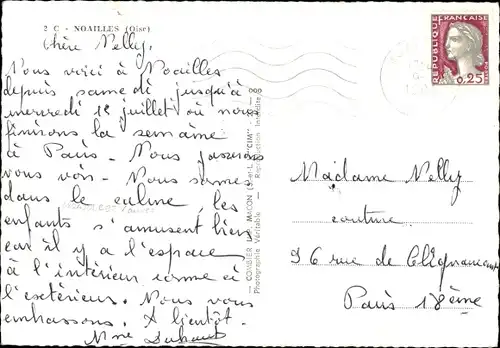 2 C - NOAILLES (Oise)
Chère Nelly,
Nous voici à Noailles
depuis samedi jusqu'à
mercredi 1er juillet où nous
finirons la semaine
à Paris. Nous passerons
vous voir. Nous sommes
dans le calme, les
enfants s'amusent bien
car il y a l'espace
à l'intérieur comme à
l'extérieur. Nous vous
embrassons. A bientôt.
Mme
COMBIER IMP. MACON (S.-et-L.) "CIM"
Photographie Véritable - Reproduction Interdite
REPUBLIQUE FRANÇAISE
0,25
Madame Nelly
couture
96 rue de Clignancourt
Paris 18ème